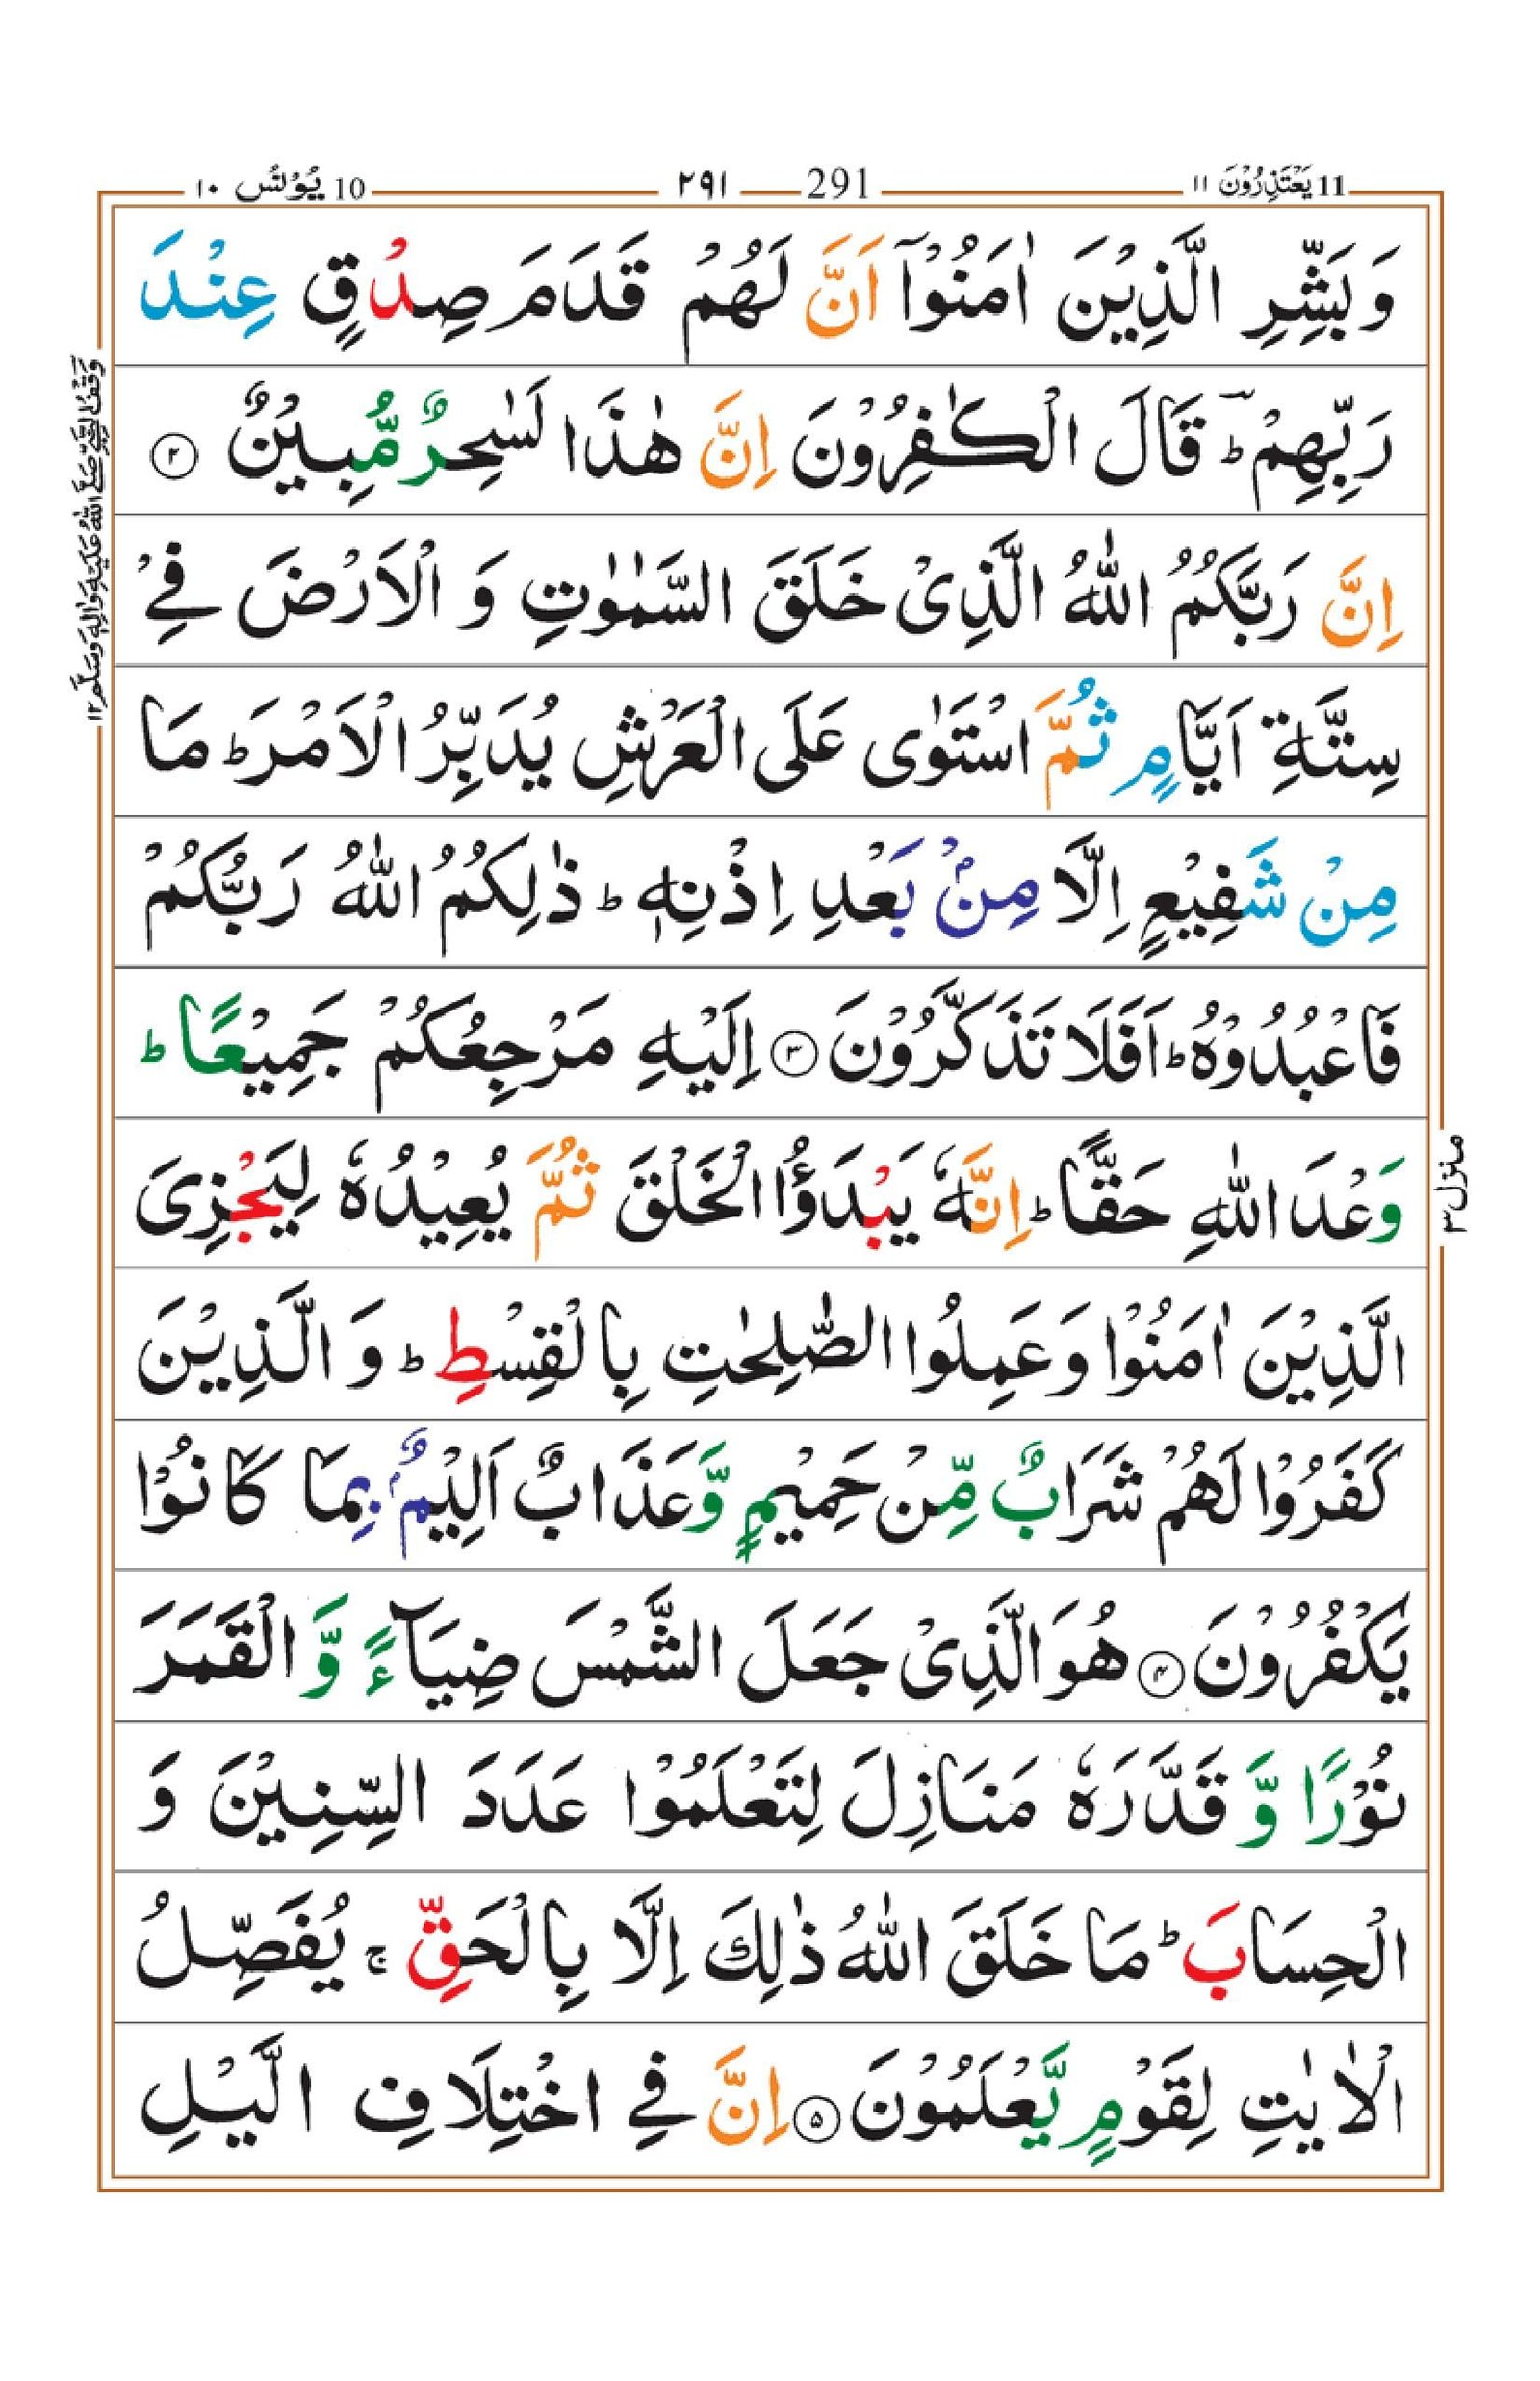 11 يَعْتَذِرُوْنَ ١١ 291 ٢٩١ 10 يُوْنُسُ ١٠
وَ بَشِّرِ الَّذِيْنَ اٰمَنُوْۤا اَنَّ لَهُمْ قَدَمَ صِدْقٍ عِنْدَ
رَبِّهِمْ ؔؕ قَالَ الْكٰفِرُوْنَ اِنَّ هٰذَا لَسٰحِرٌ مُّبِيْنٌ ۝۲
اِنَّ رَبَّكُمُ اللّٰهُ الَّذِىْ خَلَقَ السَّمٰوٰتِ وَ الْاَرْضَ فِىْ
سِتَّةِ اَيَّامٍ ثُمَّ اسْتَوٰى عَلَى الْعَرْشِ يُدَبِّرُ الْاَمْرَ ؕ مَا
مِنْ شَفِيْعٍ اِلَّا مِنْۢ بَعْدِ اِذْنِهٖ ؕ ذٰلِكُمُ اللّٰهُ رَبُّكُمْ
فَاعْبُدُوْهُ ؕ اَفَلَا تَذَكَّرُوْنَ ۝۳ اِلَيْهِ مَرْجِعُكُمْ جَمِيْعًا ؕ
وَعْدَ اللّٰهِ حَقًّا ؕ اِنَّهٗ يَبْدَؤُا الْخَلْقَ ثُمَّ يُعِيْدُهٗ لِيَجْزِىَ
الَّذِيْنَ اٰمَنُوْا وَ عَمِلُوا الصّٰلِحٰتِ بِالْقِسْطِ ؕ وَ الَّذِيْنَ
كَفَرُوْا لَهُمْ شَرَابٌ مِّنْ حَمِيْمٍ وَّ عَذَابٌ اَلِيْمٌۢ بِمَا كَانُوْا
يَكْفُرُوْنَ ۝۴ هُوَ الَّذِىْ جَعَلَ الشَّمْسَ ضِيَآءً وَّ الْقَمَرَ
نُوْرًا وَّ قَدَّرَهٗ مَنَازِلَ لِتَعْلَمُوْا عَدَدَ السِّنِيْنَ وَ
الْحِسَابَ ؕ مَا خَلَقَ اللّٰهُ ذٰلِكَ اِلَّا بِالْحَقِّ ۚ يُفَصِّلُ
الْاٰيٰتِ لِقَوْمٍ يَّعْلَمُوْنَ ۝۵ اِنَّ فِىْ اخْتِلَافِ الَّيْلِ
وَقْفُ النَّبِىِّ صَلَّى اللّٰهُ عَلَيْهِ وَاٰلِهٖ وَسَلَّمَ ١٢
منزل ٣